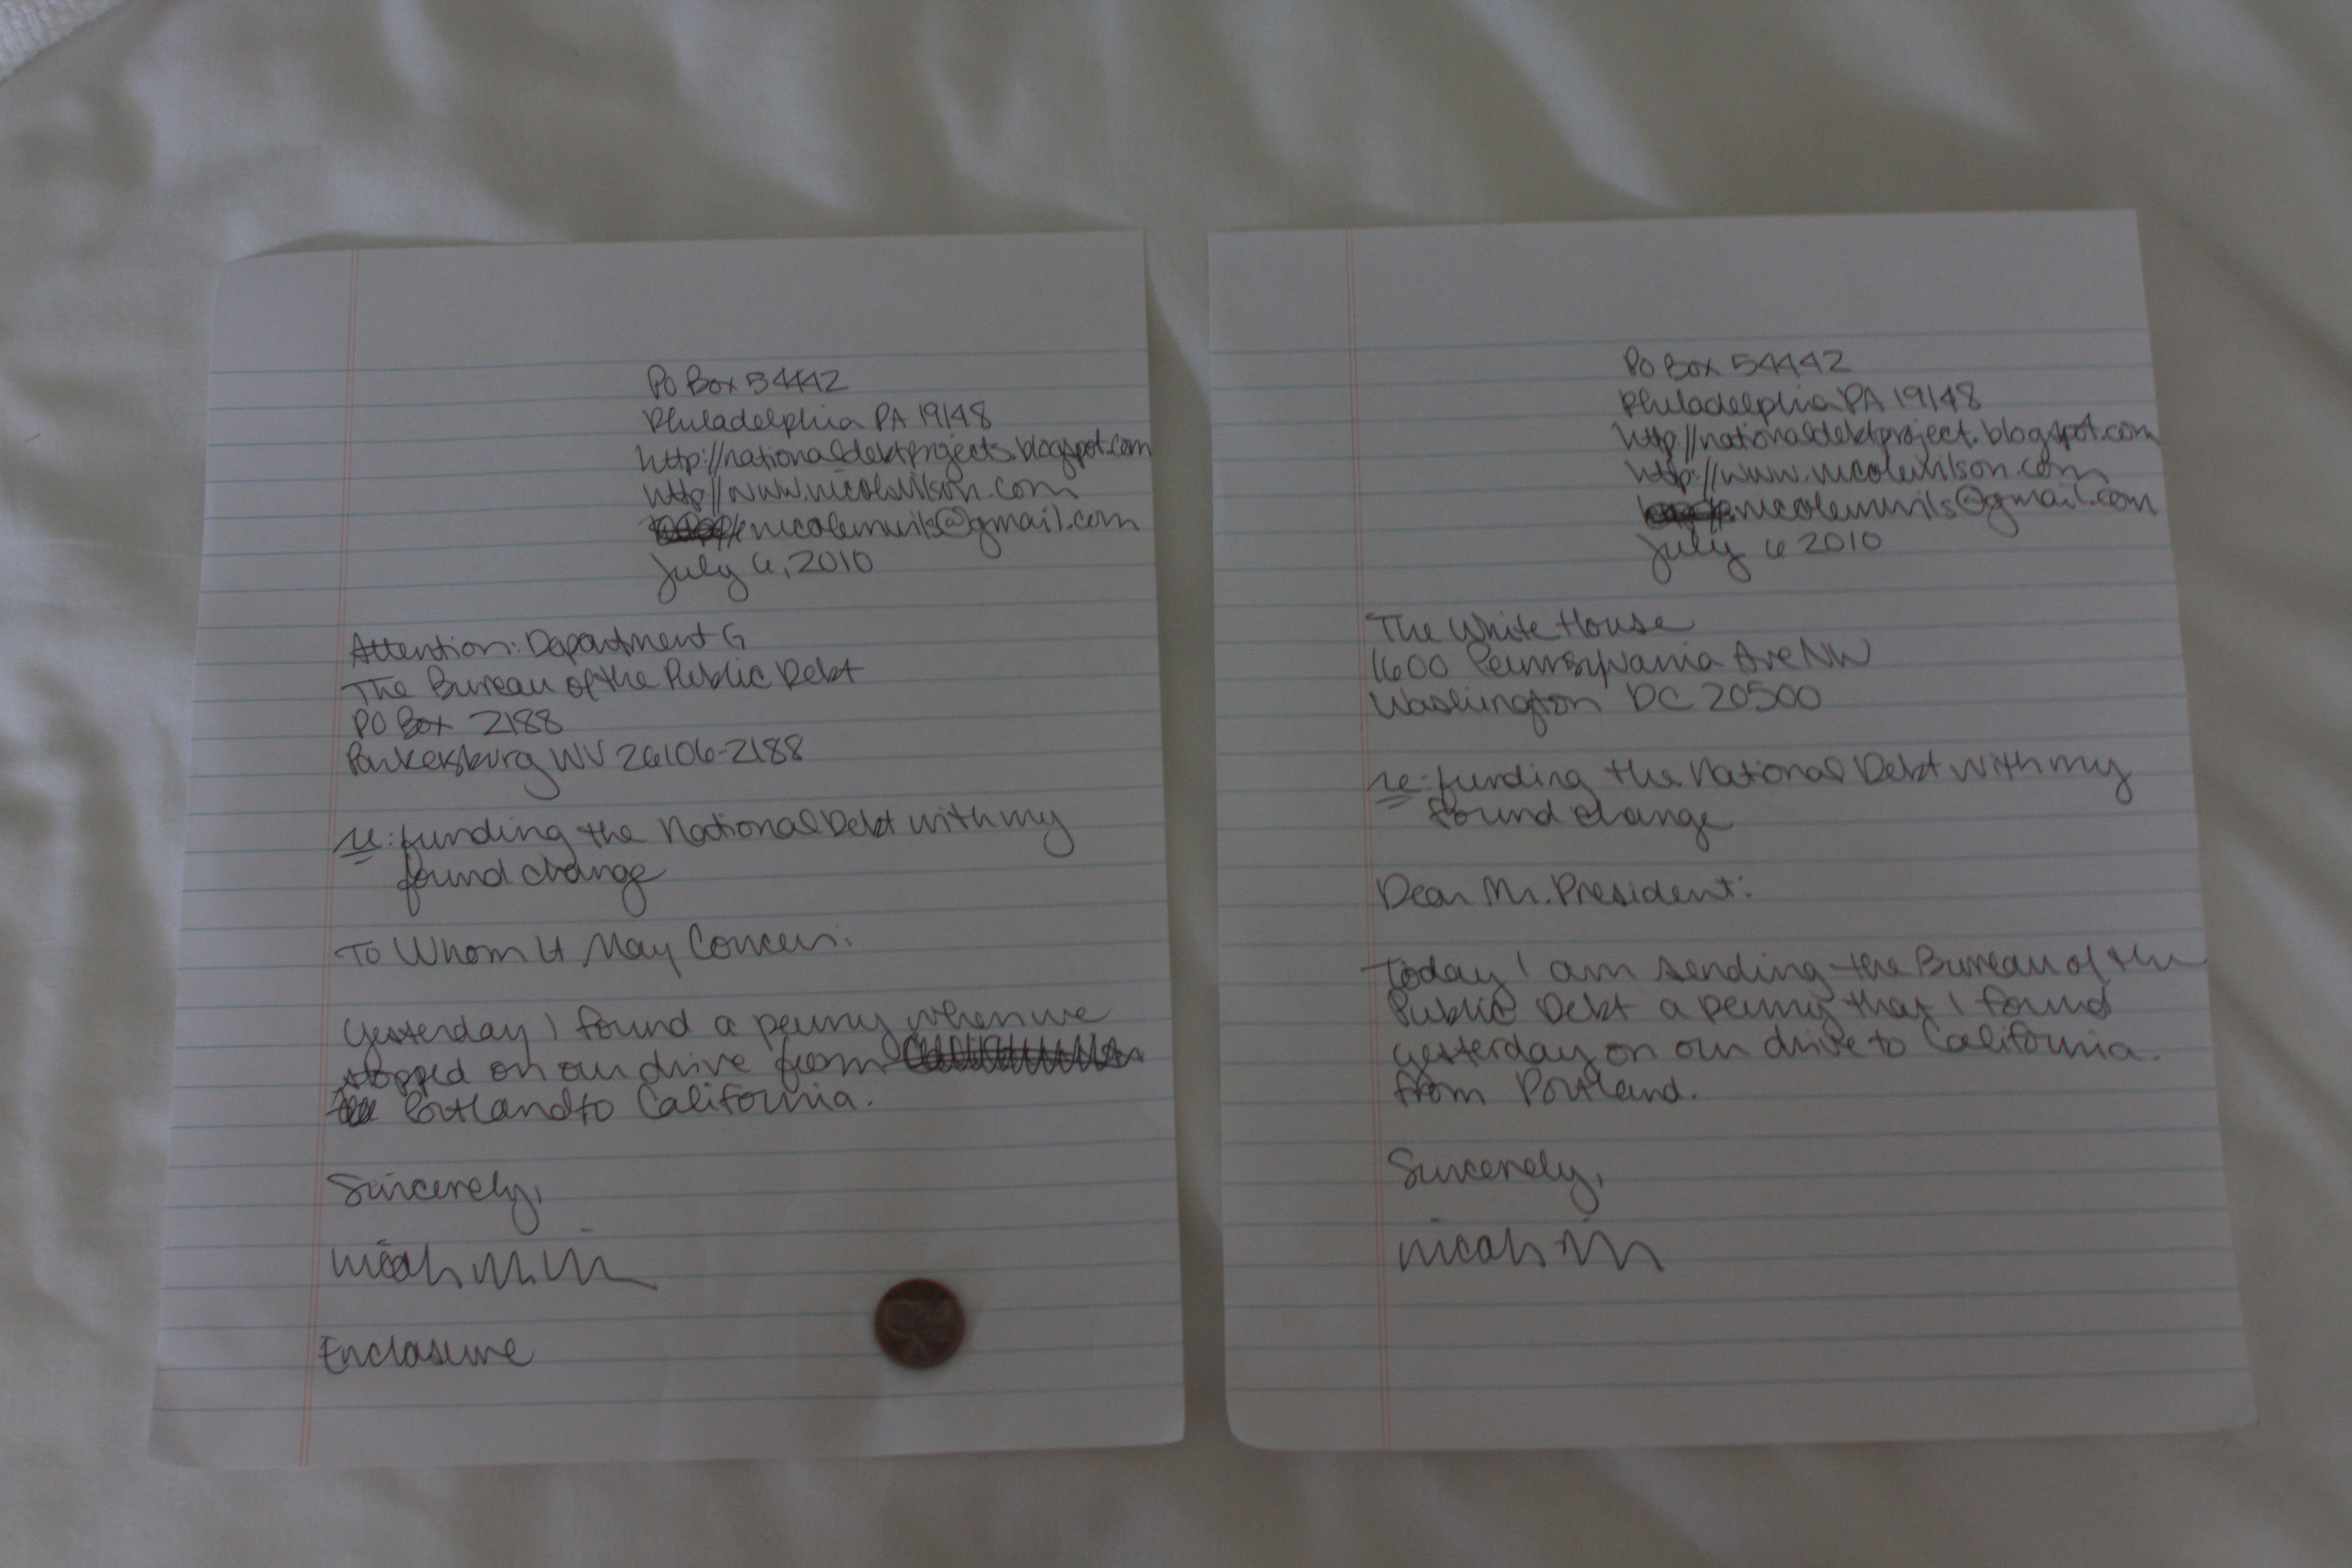 PO Box 54442
Philadelphia PA 19148
http://nationaldebtprojects.blogspot.com
http://www.nicolewilson.com
nicolemwils@gmail.com
July 6, 2010
Attention: Department G
The Bureau of the Public Debt
PO Box 2188
Parkersburg WV 26106-2188
re: funding the National Debt with my
found change
To Whom It May Concern:
Yesterday I found a penny when we
stopped on our drive from
Portland to California.
Sincerely,
Enclosure
PO Box 54442
Philadelphia PA 19148
http://nationaldebtproject.blogspot.com
http://www.nicolewilson.com
nicolemwils@gmail.com
July 6 2010
The White House
1600 Pennsylvania Ave NW
Washington DC 20500
re: funding the National Debt with my
found change
Dear Mr. President:
Today I am sending the Bureau of the
Public Debt a penny that I found
yesterday on our drive to California.
from Portland.
Sincerely,